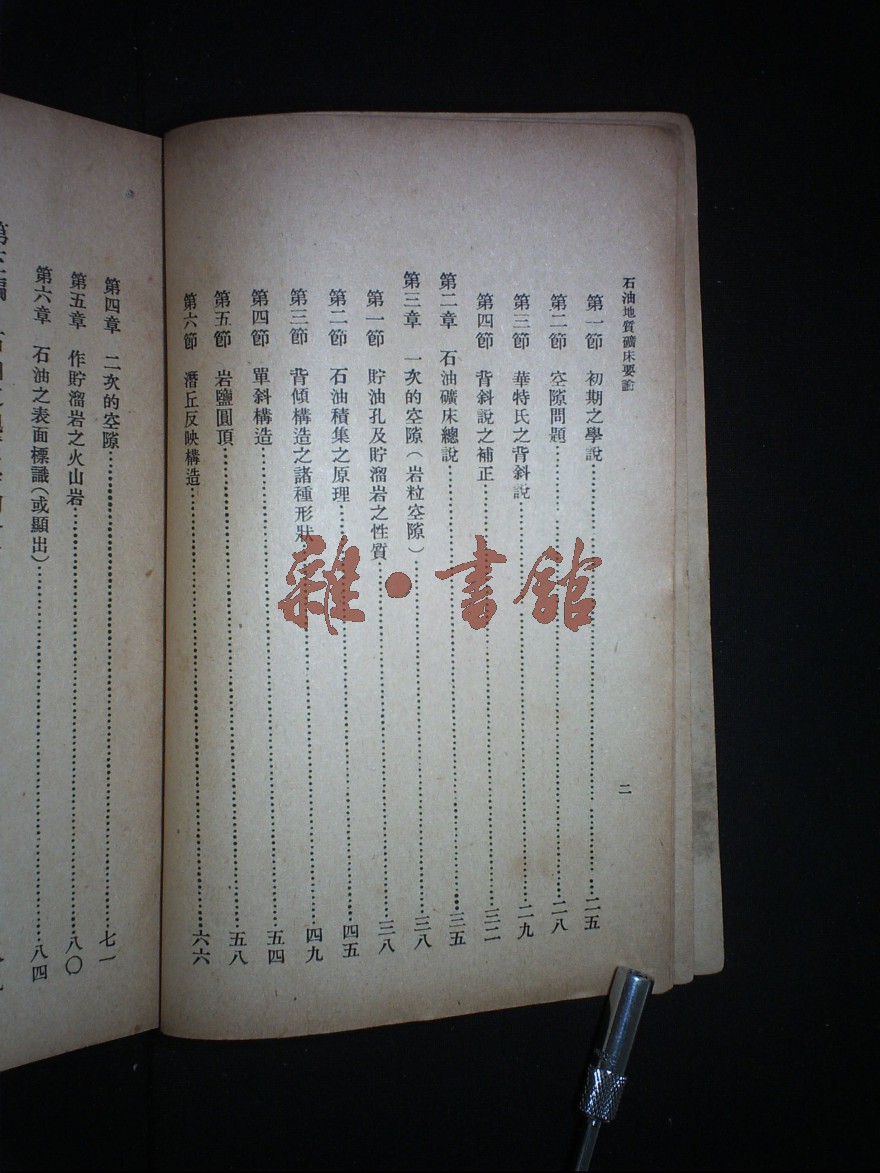 石油地質礦床要論
二
第一節 初期之學說……二五
第二節 空隙問題……二八
第三節 華特氏之背斜說……二九
第四節 背斜說之補正……三二
第二章 石油礦床總說……三五
第三章 一次的空隙(岩粒空隙)……三八
第一節 貯油孔及貯溜岩之性質……三八
第二節 石油積集之原理……四五
第三節 背傾構造之諸種形狀……四九
第四節 單斜構造……五四
第五節 岩鹽圓頂……五八
第六節 潛丘反映構造……六六
第四章 二次的空隙……七一
第五章 作貯溜岩之火山岩……八〇
第六章 石油之表面標識(或顯出)……八四
雜·書館